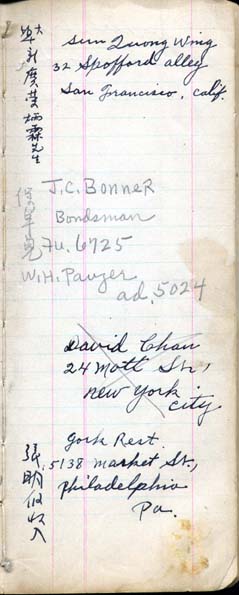 Sun Quong Wing
32 Spofford alley
San Francisco, calif.
J.C. Bonner
Bondsman
Fu. 6725
W.H. Panzer
ad, 5024
David Chan
24 Mott St,
New York
City
york Rest.
5138 market St.,
philadelphia
Pa.
廣榮炳霖先生
張明收入